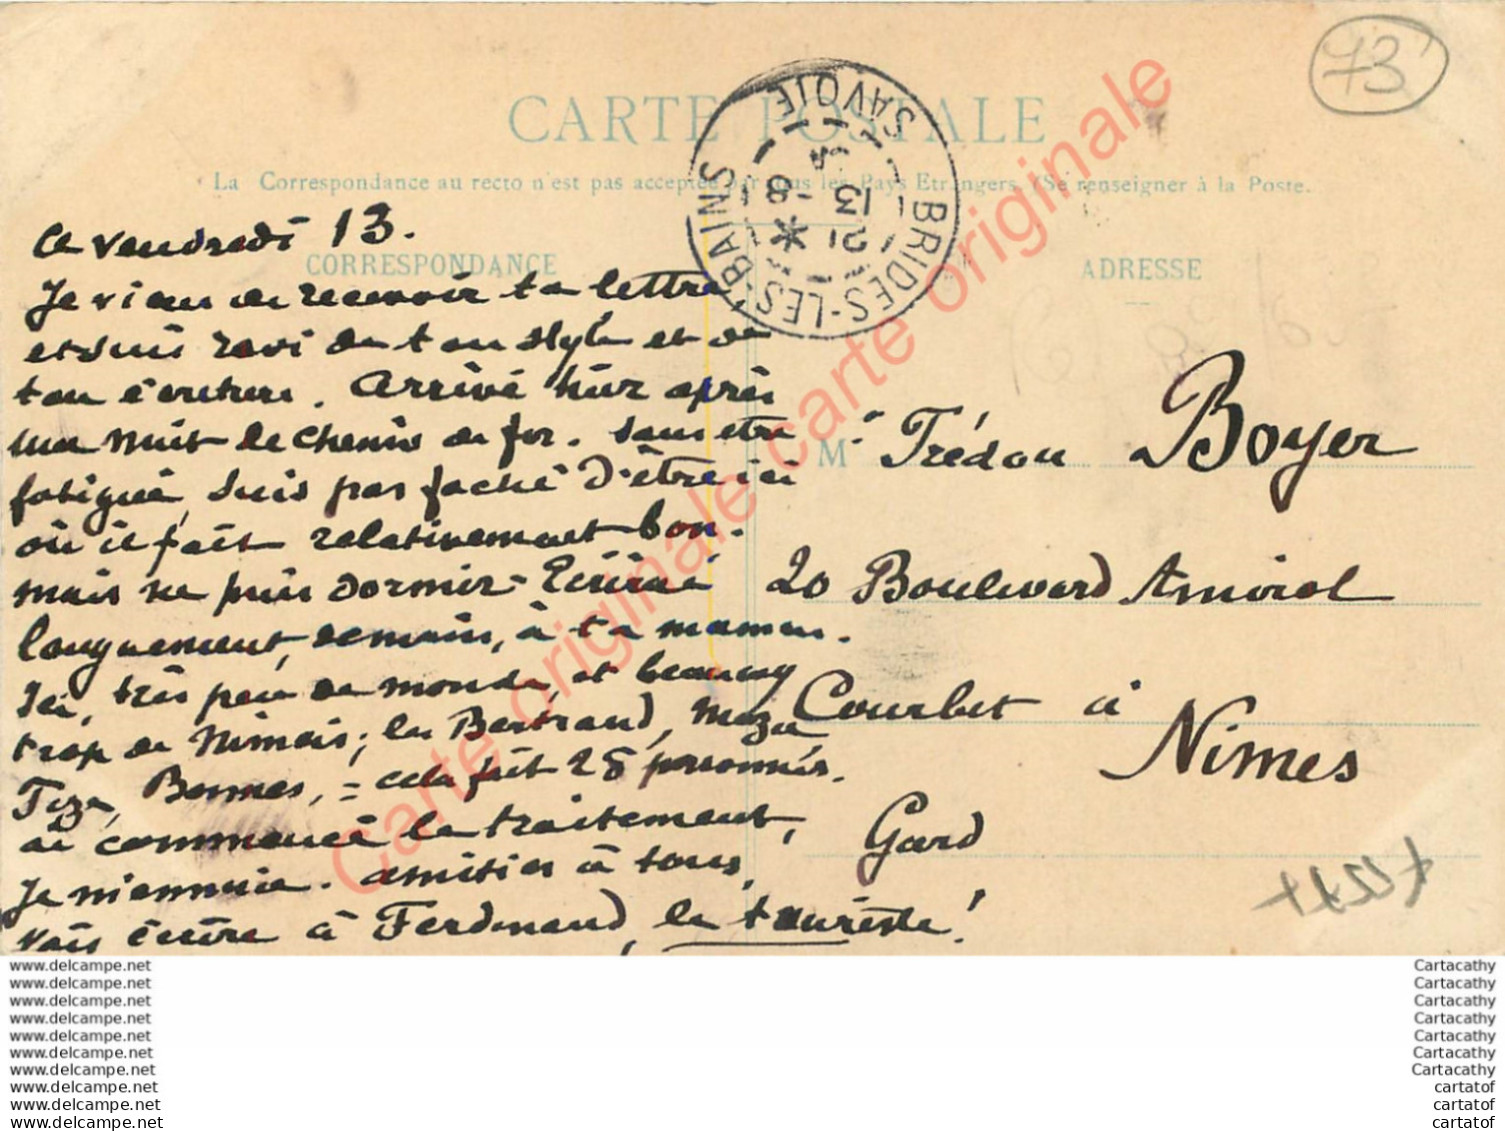 73
CARTE POSTALE
La Correspondance au recto n'est pas acceptée par tous les Pays Etrangers. (Se renseigner à la Poste.
BRIDES-LES-BAINS
SAVOIE
13 - 8
CORRESPONDANCE
ADRESSE
Ce vendredi 13.
Je viens de recevoir ta lettre
et suis ravi de ton style et de
ton écriture. Arrivé hier après
une nuit de chemin de fer. Sans être
fatigué, suis pas faché d'être ici
où il fait relativement bon.
mais ne puis dormir - Ecrirai
longuement, demain, à ta maman.
Ici, très peu de monde, et beaucoup
trop de Nimois; les Bertrand,
= cela fait 28 personnes.
ai commencé le traitement,
Je m'ennuie. amitiés à tous,
vais écrire à Ferdinand, le touriste!
M Trédou Boyer
20 Boulevard Amiral
Courbet à
Nimes
Gard
Carte originale carte originale
Carte originale
www.delcampe.net
www.delcampe.net
www.delcampe.net
www.delcampe.net
www.delcampe.net
www.delcampe.net
www.delcampe.net
www.delcampe.net
www.delcampe.net
www.delcampe.net
Cartacathy
Cartacathy
Cartacathy
Cartacathy
Cartacathy
Cartacathy
Cartacathy
cartatof
cartatof
cartatof